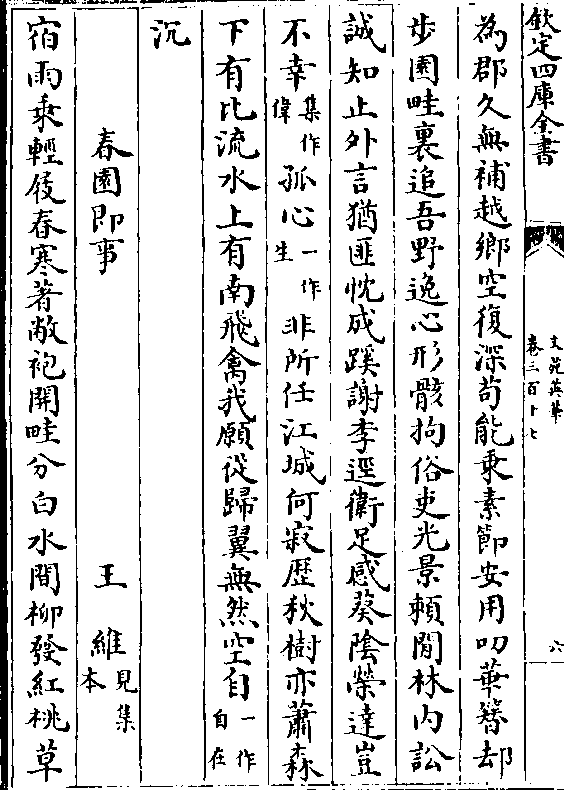 欽定四庫全書
文苑英華
卷三百十七
六
為郡久無補越鄉空復深苟能秉素節安用叨華簪却
步園畦裏追吾野逸心形骸拘俗吏光景賴閒林内訟
誠知止外言猶匪忱成蹊謝李逕衛足感葵陰榮達豈
不幸集作偉孤心一作生非所任江城何寂歴秋樹亦蕭森
下有北流水上有南飛禽我願從歸翼無然空自一作自在
沉
春園即事 王維見集本
宿雨乘輕屐春寒著敝袍開畦分白水間柳發紅桃草